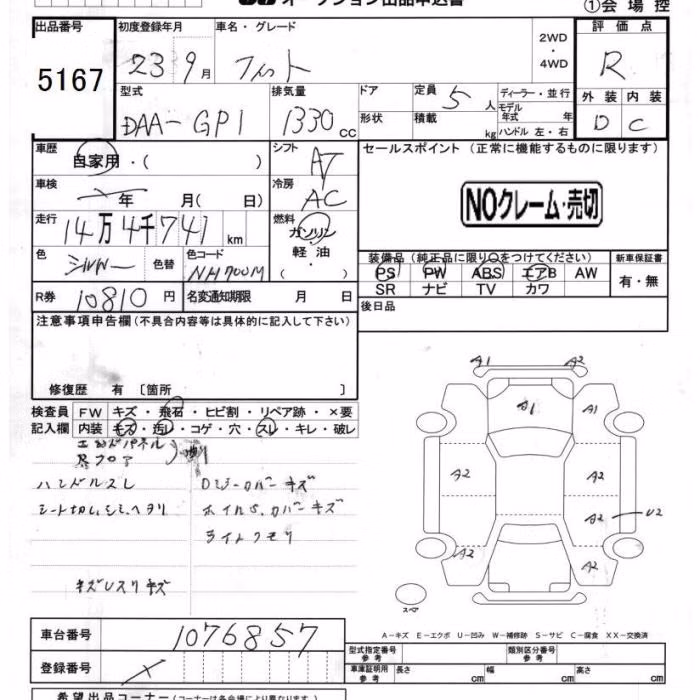 オークション出品申込書 ①会場控
出品番号 初度登録年月 車名・グレード 2WD・4WD 評価点
5167 23 9月 フィット R
型式 排気量 ドア 定員 5人 ディーラー・並行 外装 内装
DAA-GP1 1330cc 形状 積載 kg モデル年式 年 ハンドル 左・右 D C
車歴 自家用・( ) シフト AT セールスポイント (正常に機能するものに限ります)
車検 年 月( 日) 冷房 AC
NOクレーム・売切
走行 14万4千741km 燃料 ガソリン 軽油・
色 シルバー 色替 色コード NH700M
装備品(純正品に限り○をつけてください) 新車保証書
PS PW ABS エアB AW 有・無
SR ナビ TV カワ
R券 10810円 名変通知期限 月 日 後日品
注意事項申告欄(不具合内容等は具体的に記入して下さい)
修復歴 有 [箇所 ]
検査員 FW キズ・飛石・ヒビ割・リペア跡・×要
記入欄 内装 キズ・汚レ・コゲ・穴・スレ・キレ・破レ
エンドパネル
Rフロア
ハンドルスレ Dミラーカバーキズ
シート切レ,シミ,ヘタリ ホイルS.カバーキズ
ライトクモリ
A1 A2
A1 A1
A2 A2
A2 U2
A2 A2
スペア
A-キズ E-エクボ U-凹み W-補修跡 S-サビ C-腐食 XX-交換済
車台番号 1076857
型式指定番号 参考 類別区分番号 参考
登録番号 車庫証明用 参考 長さ cm 幅 cm 高さ cm
希望出品コーナー(コーナーは各会場により異なります)